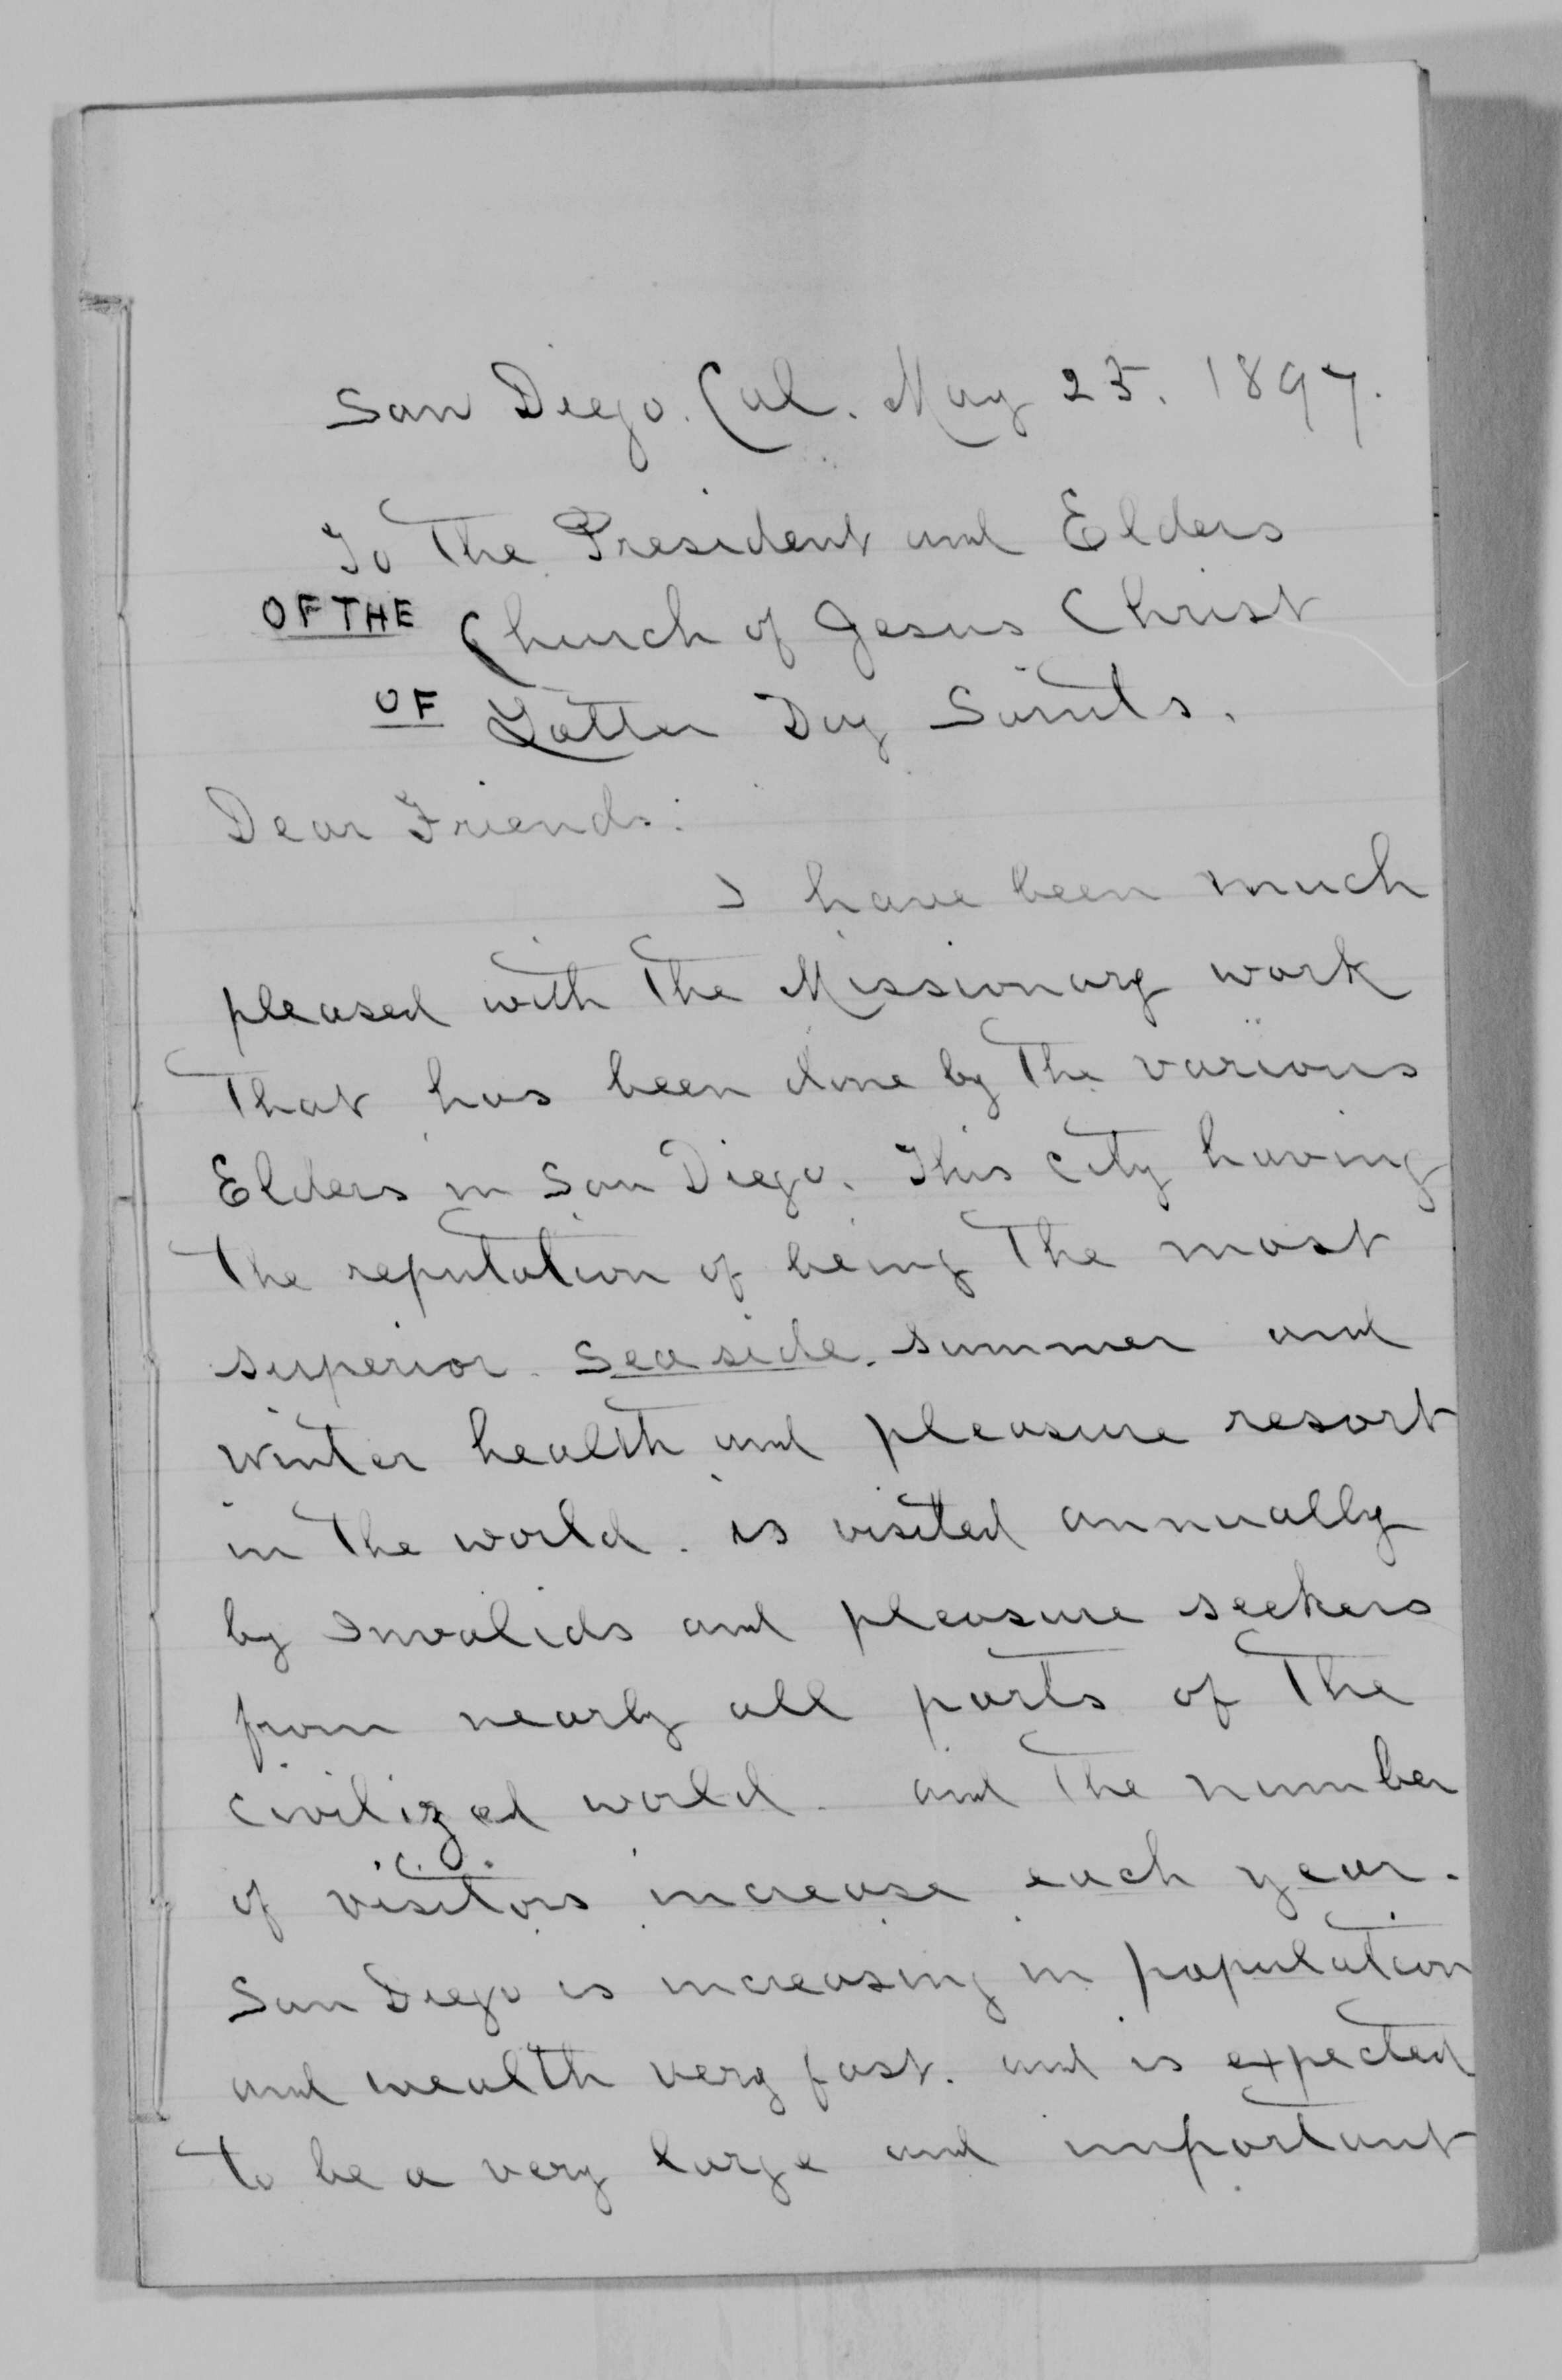 San Diego. Cal. May 25. 1897.
To The President and Elders
OF THE Church of Jesus Christ
OF Latter Day Saints.
Dear Friends:
I have been much
pleased with The Missionary work
That has been done by The various
Elders in San Diego. This city having
The reputation of being The most
superior. Seaside. summer and
winter health and pleasure resort
in The world. is visited annually
by Invalids and pleasure seekers
from nearly all parts of The
civilized world. and The number
of visitors increase each year.
San Diego is increasing in population
and wealth very fast. and is expected
To be a very large and important